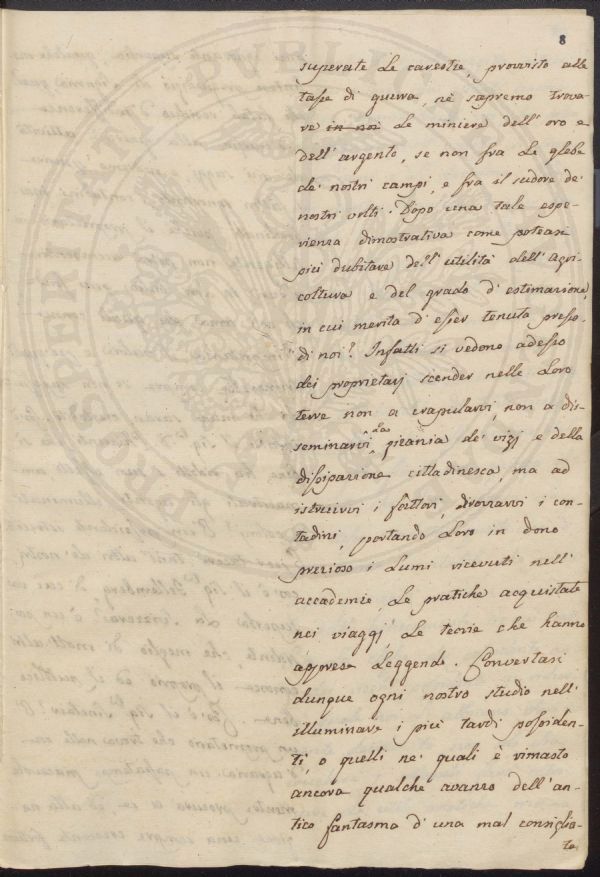 8
superate le carestie, provvisto alle
tasse di guerra, nè sapremo trova-
re in noi le miniere dell' oro e
dell' argento, se non fra le glebe
de' nostri campi, e fra il sudore de'
nostri volti. Dopo una tale espe-
rienza dimostrativa come potrassi
più dubitare dell' utilità dell' agri-
coltura e del grado d' estimazione,
in cui merita d' esser tenuta presso
di noi? Infatti si vedono adesso
dei proprietarj scender nelle loro
terre non a crapularvi, non a dis-
seminarvi la zizania de' vizj e della
dissipazione cittadinesca, ma ad
istruirvi i fattori, dirozzarvi i con-
tadini, portando loro in dono
prezioso i lumi ricevuti nell'
accademie, le pratiche acquistate
nei viaggi, le teorie che hanno
apprese leggendo. Convertasi
dunque ogni nostro studio nell'
illuminare i più tardi possiden-
ti, o quelli ne' quali è rimasto
ancora qualche avanzo dell' an-
tico fantasma d' una mal consiglia-
ta